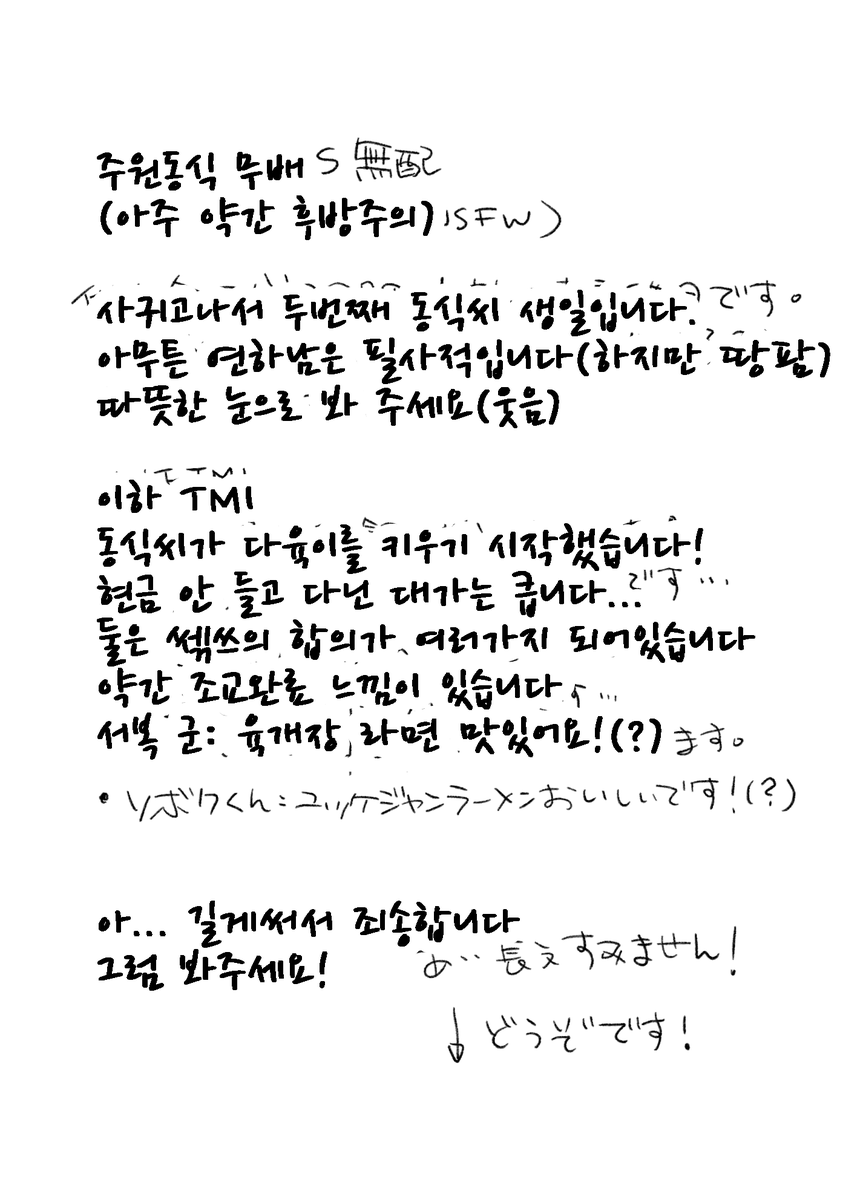 주원동식 무배 S 無配
(아주 약간 후방주의) SFW)
사귀고나서 두번째 동식씨 생일입니다. です。
아무튼 연하남은 필사적입니다(하지만 땅팜)
따뜻한 눈으로 봐 주세요(웃음)
이하 TMI
동식씨가 다육이를 키우기 시작했습니다!
현금 안 들고 다닌 대가는 큽니다... です…
둘은 쎅쓰의 합의가 여러가지 되어있습니다
약간 조교완료 느낌이 있습니다 …
서복 군: 육개장 라면 맛있어요!(?) ます。
・ソボクくん:ユッケジャンラーメンおいしいです!(?)
아... 길게써서 죄송합니다
그럼 봐주세요! あ… 長文すみません!
↓ どうぞです!